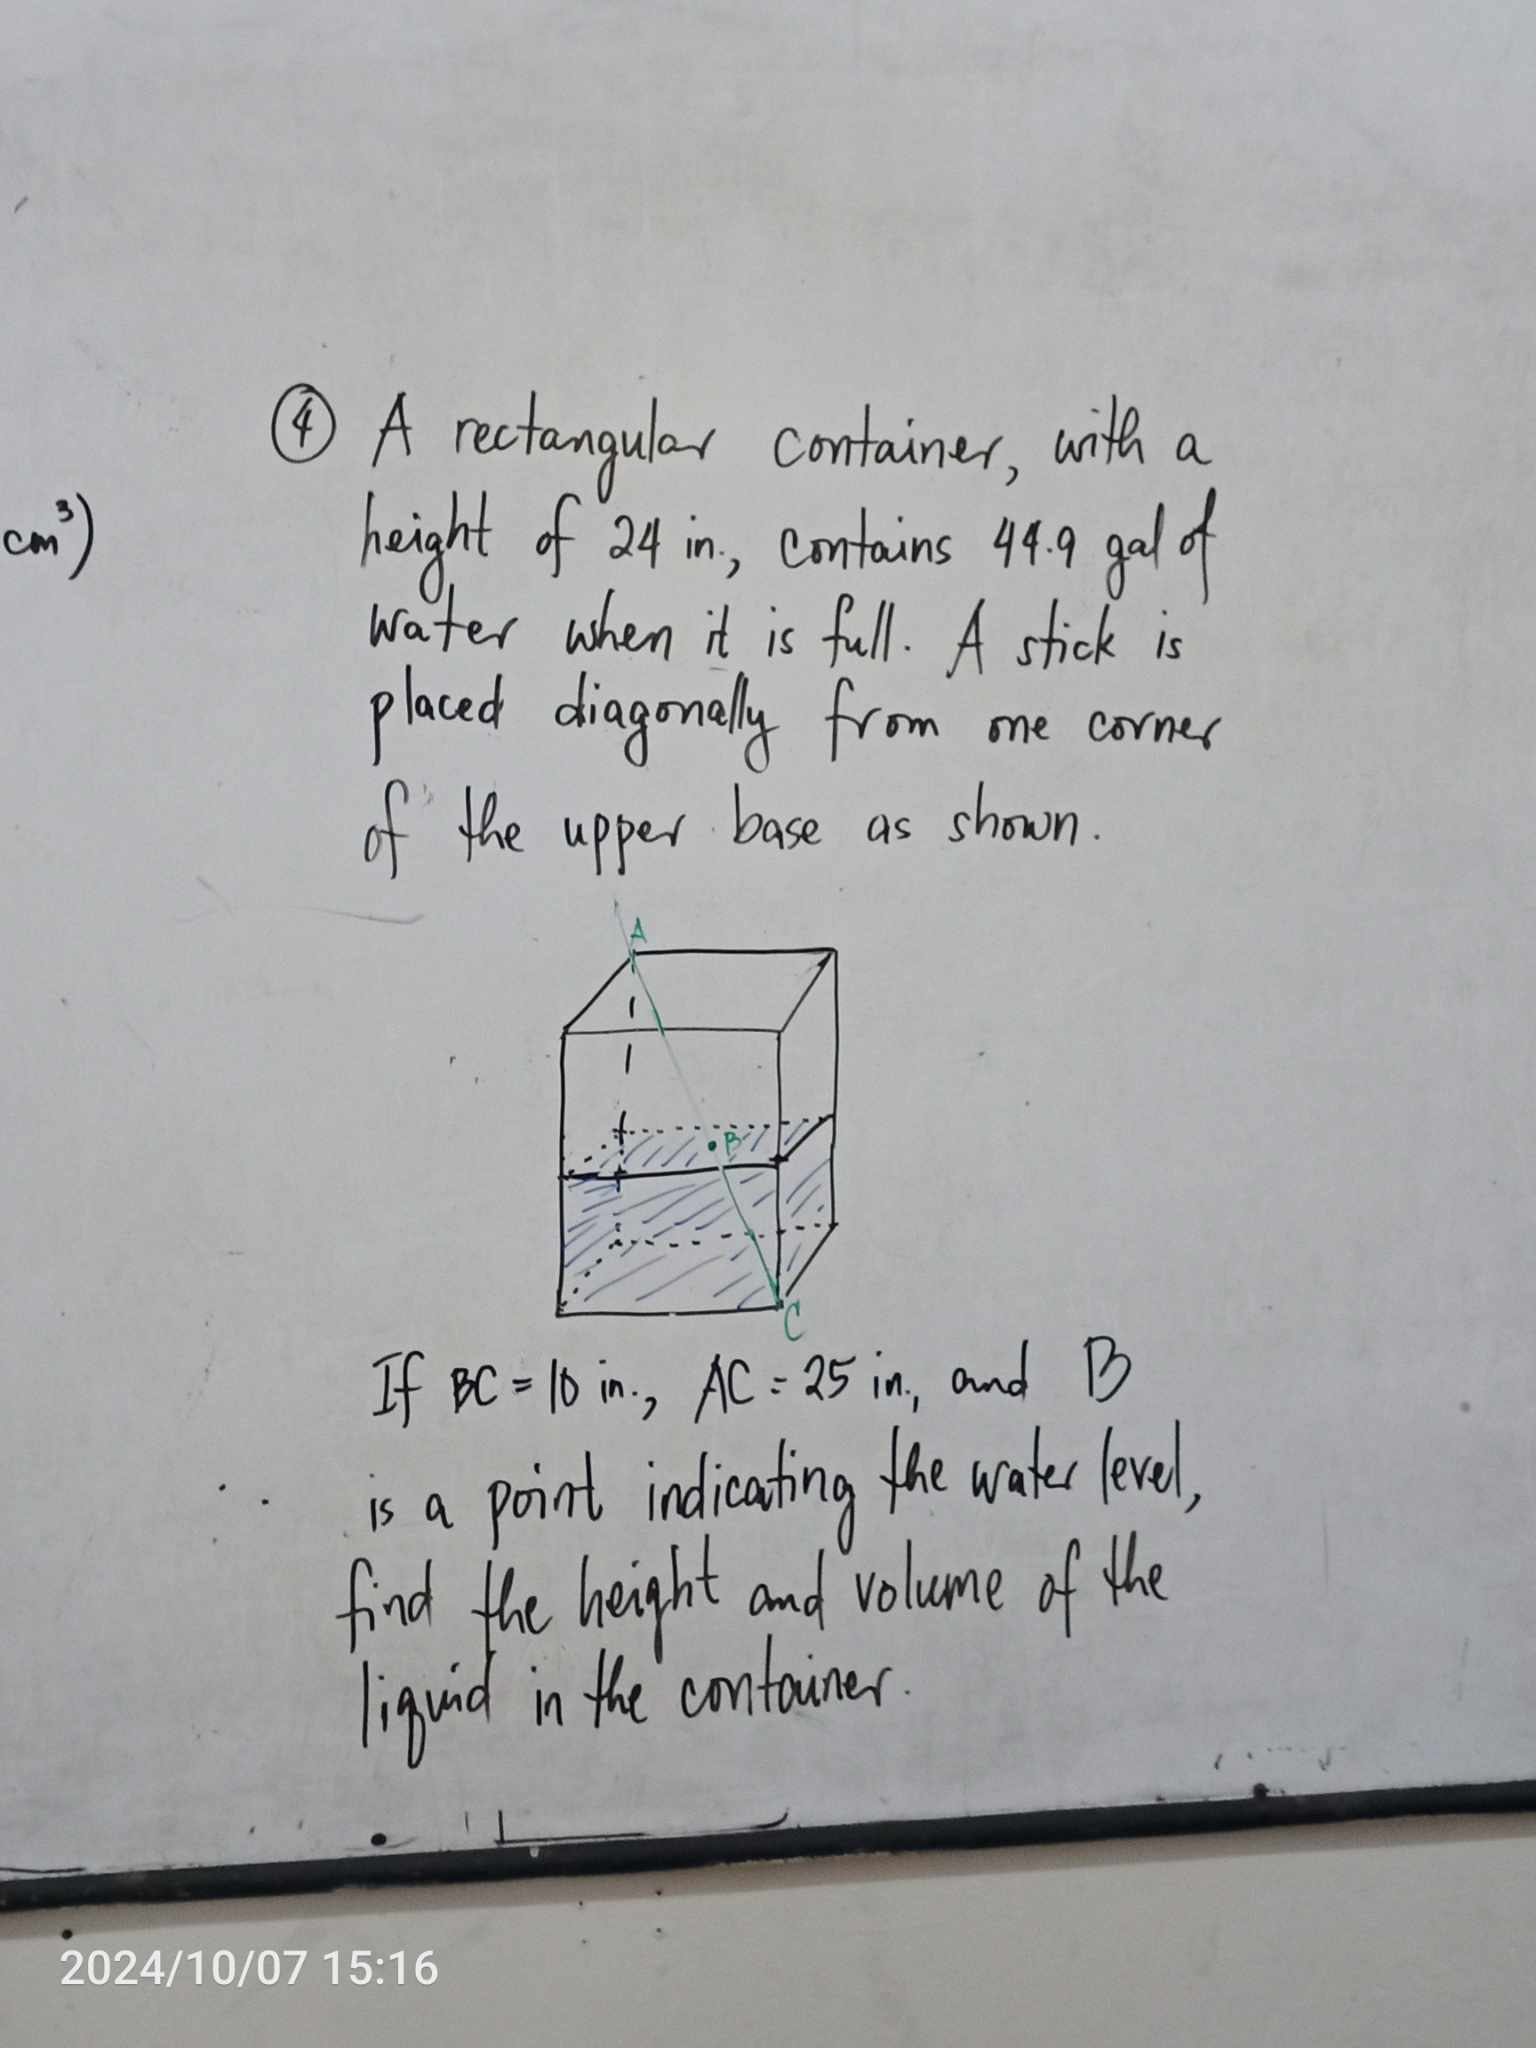 cm³)
④ A rectangular container, with a
height of 24 in., contains 44.9 gal of
water when it is full. A stick is
placed diagonally from one corner
of the upper base as shown.
A
B
C
If BC = 10 in., AC = 25 in., and B
is a point indicating the water level,
find the height and volume of the
liquid in the container.
2024/10/07 15:16